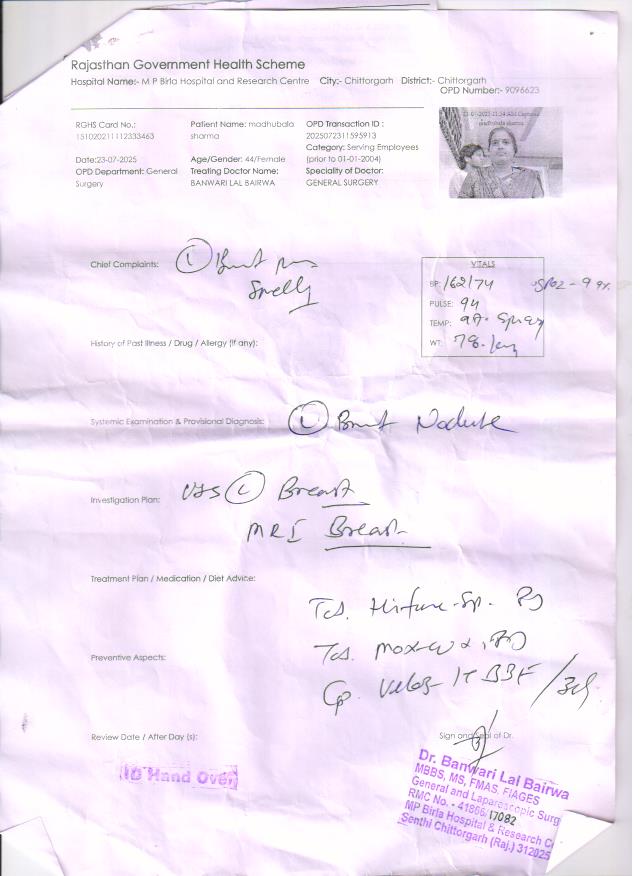 Rajasthan Government Health Scheme
Hospital Name:- M P Birla Hospital and Research Centre City:- Chittorgarh District:- Chittorgarh
OPD Number:- 9096623
RGHS Card No.: 151020211112333463
Patient Name: madhubala sharma
OPD Transaction ID : 2025072311595913
Category: Serving Employees (prior to 01-01-2004)
Date:23-07-2025
Age/Gender: 44/Female
OPD Department: General Surgery
Treating Doctor Name: BANWARI LAL BAIRWA
Speciality of Doctor: GENERAL SURGERY
madhubala sharma
Chief Complaints: L
VITALS
BP: 162/74
SPO2 - 99%
PULSE: 94
TEMP:
WT: 78 kg
History of Past Illness / Drug / Allergy (if any):
Systemic Examination & Provisional Diagnosis: L Breast Nodule
Investigation Plan: USG L Breast
MRI Breast
Treatment Plan / Medication / Diet Advice:
Preventive Aspects:
Review Date / After Day (s):
Sign and Seal of Dr.
ID Hand Over
Dr. Banwari Lal Bairwa
MBBS, MS, FMAS, FIAGES
General and Laparoscopic Surg
RMC No. - 41866/17082
MP Birla Hospital & Research C
Senthi Chittorgarh (Raj.) 312025